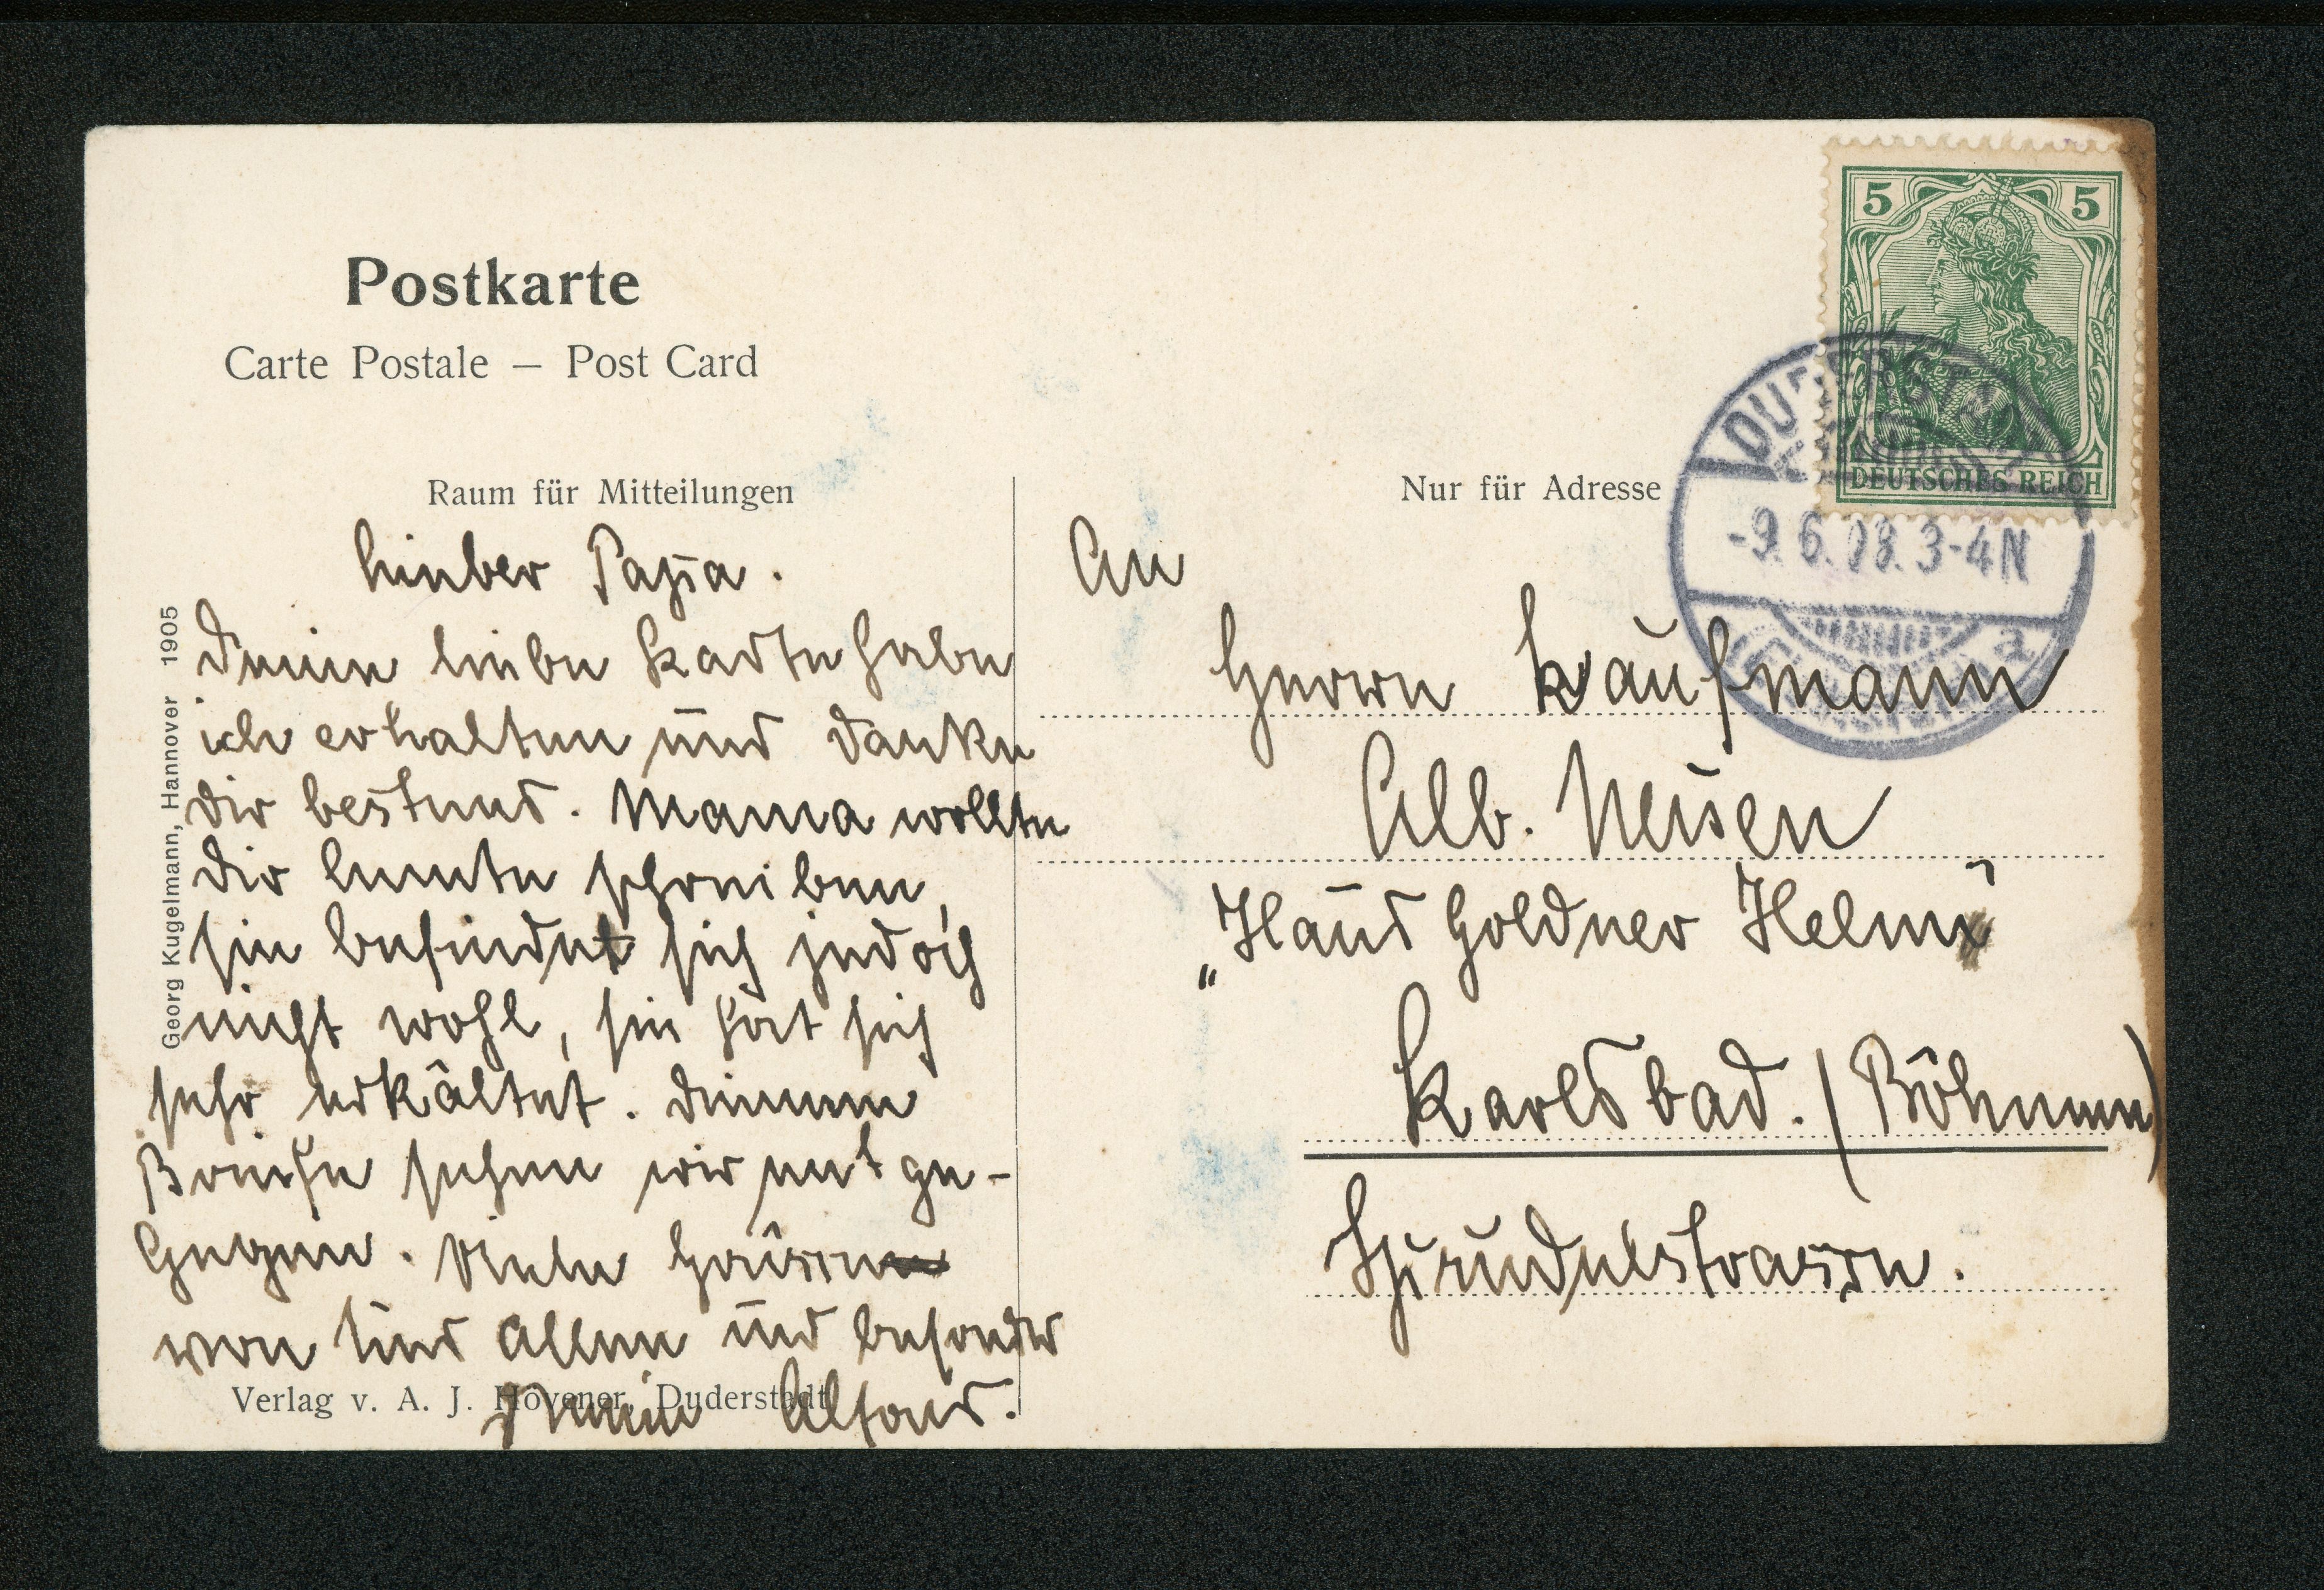 Postkarte
Carte Postale – Post Card
Raum für Mitteilungen
Lieber Papa.
Deine liebe Karte habe
ich erhalten und danke
dir bestens. Mama wollte
dir heute schreiben,
sie befindet sich jedoch
nicht wohl, sie hat sich
sehr erkältet. Deinem
Briefe sehen wir entge-
gegen. Viele Grüsse
von uns allen und besonder
Dein Alfons.
Georg Kugelmann, Hannover 1905
Verlag v. A. J. Hövener, Duderstadt
5 5
DEUTSCHES REICH
DUDERSTADT
-9.6.08.3-4N
a
Nur für Adresse
An
Herrn Kaufmann
Alb.
„Haus Goldner Helm"
Karlsbad. (Böhmen)
Sprudelstrasse.